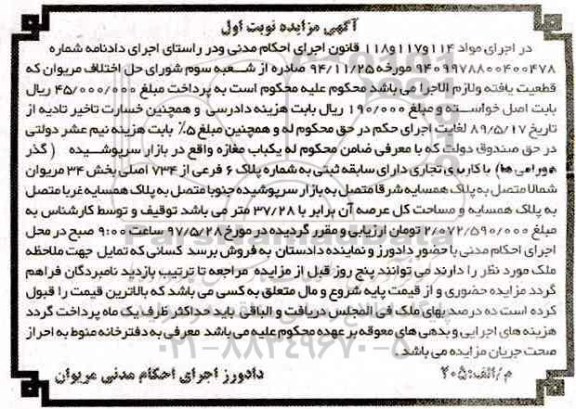 آگهی مزایده نوبت اول
در اجرای مواد ۱۱۴و۱۱۷و۱۱۸ قانون اجرای احکام مدنی ودر راستای اجرای دادنامه شماره
۹۴۰۹۹۷۸۸۰۰۴۰۰۴۷۸ مورخه ۹۴/۱۱/۲۵ صادره از شعبه سوم شورای حل اختلاف مریوان که
قطعیت یافته ولازم الاجرا می باشد محکوم علیه محکوم است به پرداخت مبلغ ۴۵/۰۰۰/۰۰۰ ریال
بابت اصل خواسته و مبلغ ۱۹۰/۰۰۰ ریال بابت هزینه دادرسی و همچنین خسارت تاخیر تادیه از
تاریخ ۸۹/۵/۱۷ لغایت اجرای حکم در حق محکوم له و همچنین مبلغ ۵% بابت هزینه نیم عشر دولتی
در حق صندوق دولت که با معرفی ضامن محکوم له یکباب مغازه واقع در بازار سرپوشیده ( گذر
هورامی ها) با کاربری تجاری دارای سابقه ثبتی به شماره پلاک ۶ فرعی از ۷۳۴ اصلی بخش ۳۴ مریوان
شمالا متصل به پلاک همسایه شرقا متصل به بازار سرپوشیده جنوبا متصل به پلاک همسایه غربا متصل
به پلاک همسایه و مساحت کل عرصه آن برابر با ۳۷/۲۸ متر می باشد توقیف و توسط کارشناس به
مبلغ ۲/۰۷۲/۵۹۰/۰۰۰ تومان ارزیابی و مقرر گردیده در مورخ ۹۷/۵/۲۸ ساعت ۹:۰۰ صبح در محل
اجرای احکام مدنی با حضور دادورز و نماینده دادستان به فروش برسد کسانی که تمایل جهت ملاحظه
ملک مورد نظر را دارند می توانند پنج روز قبل از مزایده مراجعه تا ترتیب بازدید نامبردگان فراهم
گردد مزایده حضوری و از قیمت پایه شروع و مال متعلق به کسی می باشد که بالاترین قیمت را قبول
کرده است ده درصد بهای ملک فی المجلس دریافت و الباقی باید حداکثر ظرف یک ماه پرداخت گردد
هزینه های اجرایی و بدهی های معوقه بر عهده محکوم علیه می باشد معرفی به دفترخانه منوط به احراز
صحت جریان مزایده می باشد.
م/الف:۲۰۵ دادورز اجرای احکام مدنی مریوان
ParsNamadData
۰۲۱-۸۸۳۴۹۶۷۰-۵